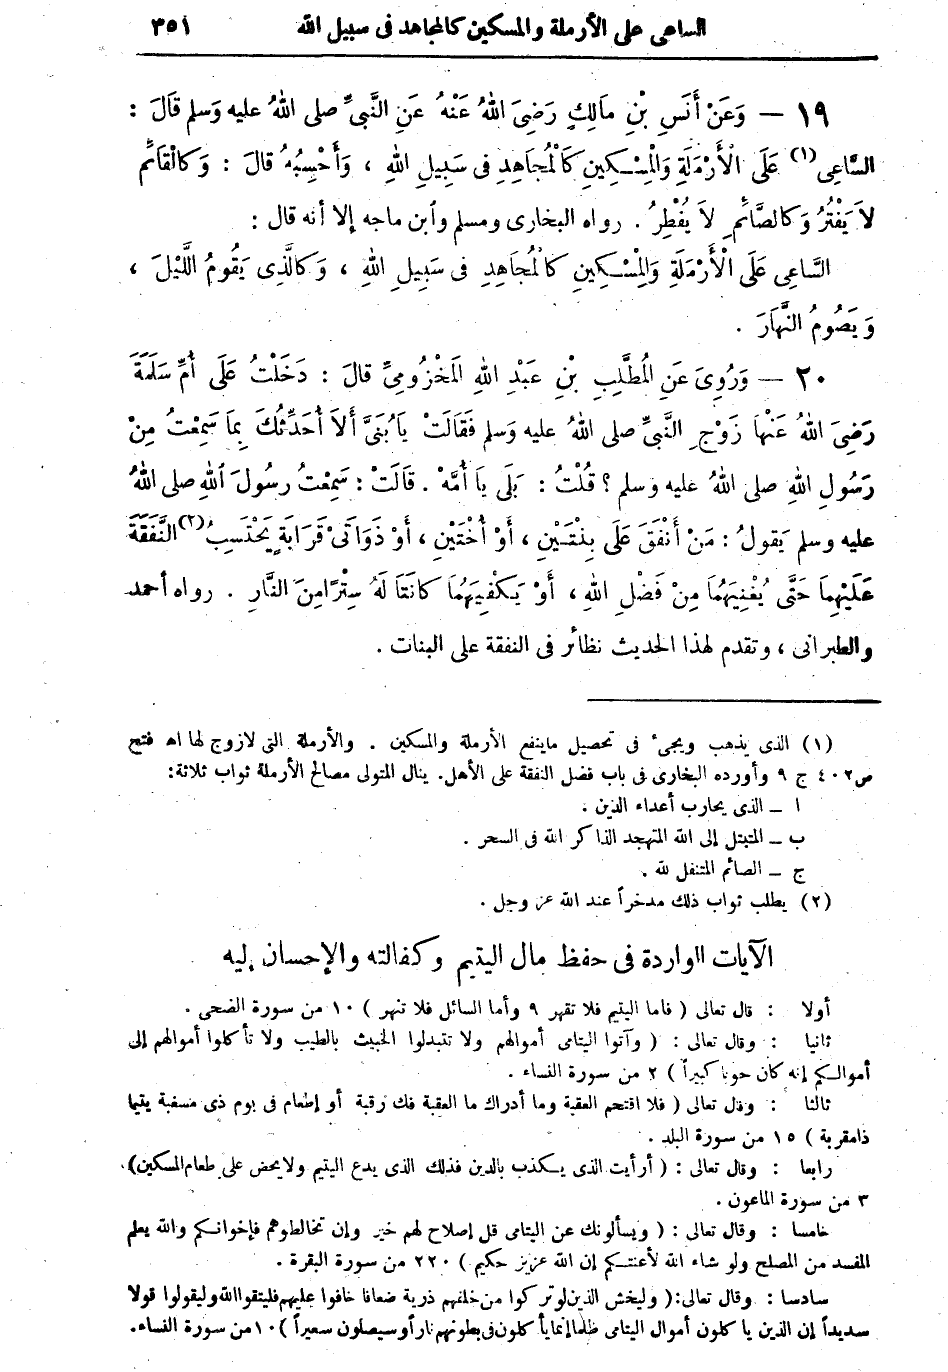 الساعى على الأرملة والمسكين كالمجاهد فى سبيل الله ٣٥١
١٩ — وَعَنْ أَنَسِ بْنِ مَالِكٍ رَضِىَ اللهُ عَنْهُ عَنِ النَّبِىِّ صلى اللهُ عليه وَسلم قَالَ :
السَّاعِى(١) عَلَى الْأَرْمَلَةِ وَالْمِسْكِينِ كَالْمُجَاهِدِ فى سَبِيلِ اللهِ ، وَأَحْسِبُهُ قالَ : وَكالْقَائِمِ
لاَ يَفْتُرُ وَكالصَّائِمِ لاَ يُفْطِرُ . رواه البخارى ومسلم وابن ماجه إلا أنه قال :
السَّاعِى عَلَى الْأَرْمَلَةِ وَالْمِسْكِينِ كالْمُجَاهِدِ فى سَبِيلِ اللهِ ، وَكالَّذِى يَقُومُ اللَّيْلَ ،
وَيَصُومُ النَّهَارَ .
٢٠ — وَرُوِىَ عَنِ الْمُطَّلِبِ بْنِ عَبْدِ اللهِ الْمَخْزُومِىِّ قالَ : دَخَلْتُ عَلَى أُمِّ سَلَمَةَ
رَضِىَ اللهُ عَنْهَا زَوْجِ النَّبِىِّ صلى اللهُ عليه وَسلم فَقَالَتْ يَا بُنَىَّ أَلاَ أُحَدِّثُكَ بِمَا سَمِعْتُ مِنْ
رَسُولِ اللهِ صلى اللهُ عليه وسلم ؟ قُلْتُ : بَلَى يَا أُمَّهْ . قَالَتْ : سَمِعْتُ رسُولَ اللهِ صلى اللهُ
عليه وسلم يَقولُ : مَنْ أَنْفَقَ عَلَى بِنْتَيْنِ ، أَوْ أُخْتَيْنِ ، أَوْ ذَوَاتَىْ قَرَابَةٍ يَحْتَسِبُ(٢) النَّفَقَةَ
عَلَيْهِمَا حَتَّى يُغْنِيَهُمَا مِنْ فَضْلِ اللهِ ، أَوْ يَكْفِيَهُمَا كَانَتَا لَهُ سِتْرًا مِنَ النَّارِ . رواه أحمد
والطبرانى ، وتقدم لهذا الحديث نظائر فى النفقة على البنات .
(١) الذى يذهب ويجىء فى تحصيل ماينفع الأرملة والمسكين . والأرملة التى لازوج لها اهـ فتح
ص٤٠٢ ج ٩ وأورده البخارى فى باب فضل النفقة على الأهل. ينال المتولى مصالح الأرملة ثواب ثلاثة:
ا ــ الذى يحارب أعداء الدين .
ب ــ المتبتل إلى الله المتهجد الذاكر الله فى السحر .
ج ــ الصائم المتنفل لله .
(٢) يطلب ثواب ذلك مدخراً عند الله عز وجل .
الآيات الواردة فى حفظ مال اليتيم وكفالته والإحسان إليه
أولا : قال تعالى ( فاما اليتيم فلا تقهر ٩ وأما السائل فلا تنهر ) ١٠ من سورة الضحى .
ثانيا : وقال تعالى : ( وآتوا اليتامى أموالهم ولا تتبدلوا الخبيث بالطيب ولا تأكلوا أموالهم إلى
أموالكم إنه كان حوبا كبيراً ) ٢ من سورة النساء .
ثالثا : وقال تعالى ( فلا اقتحم العقبة وما أدراك ما العقبة فك رقبة أو إطعام فى يوم ذى مسغبة يتيما
ذامقربة ) ١٥ من سورة البلد .
رابعا : وقال تعالى : ( أرأيت الذى يكذب بالدين فذلك الذى يدع اليتيم ولايحض على طعام المسكين).
٣ من سورة الماعون .
خامسا : وقال تعالى : ( ويسألونك عن اليتامى قل إصلاح لهم خير وإن تخالطوهم فإخوانكم والله يعلم
المفسد من المصلح ولو شاء الله لأعنتكم إن الله عزيز حكيم ) ٢٢٠ من سورة البقرة .
سادسا : وقال تعالى: ( وليخش الذين لو تركوا من خلفهم ذرية ضعافا خافوا عليهم فليتقوا الله وليقولوا قولا
سديداً إن الذين يا كلون أموال اليتامى ظلما إنما يأكلون فى بطونهم ناراً وسيصلون سعيراً ) ١٠ من سورة النساء.